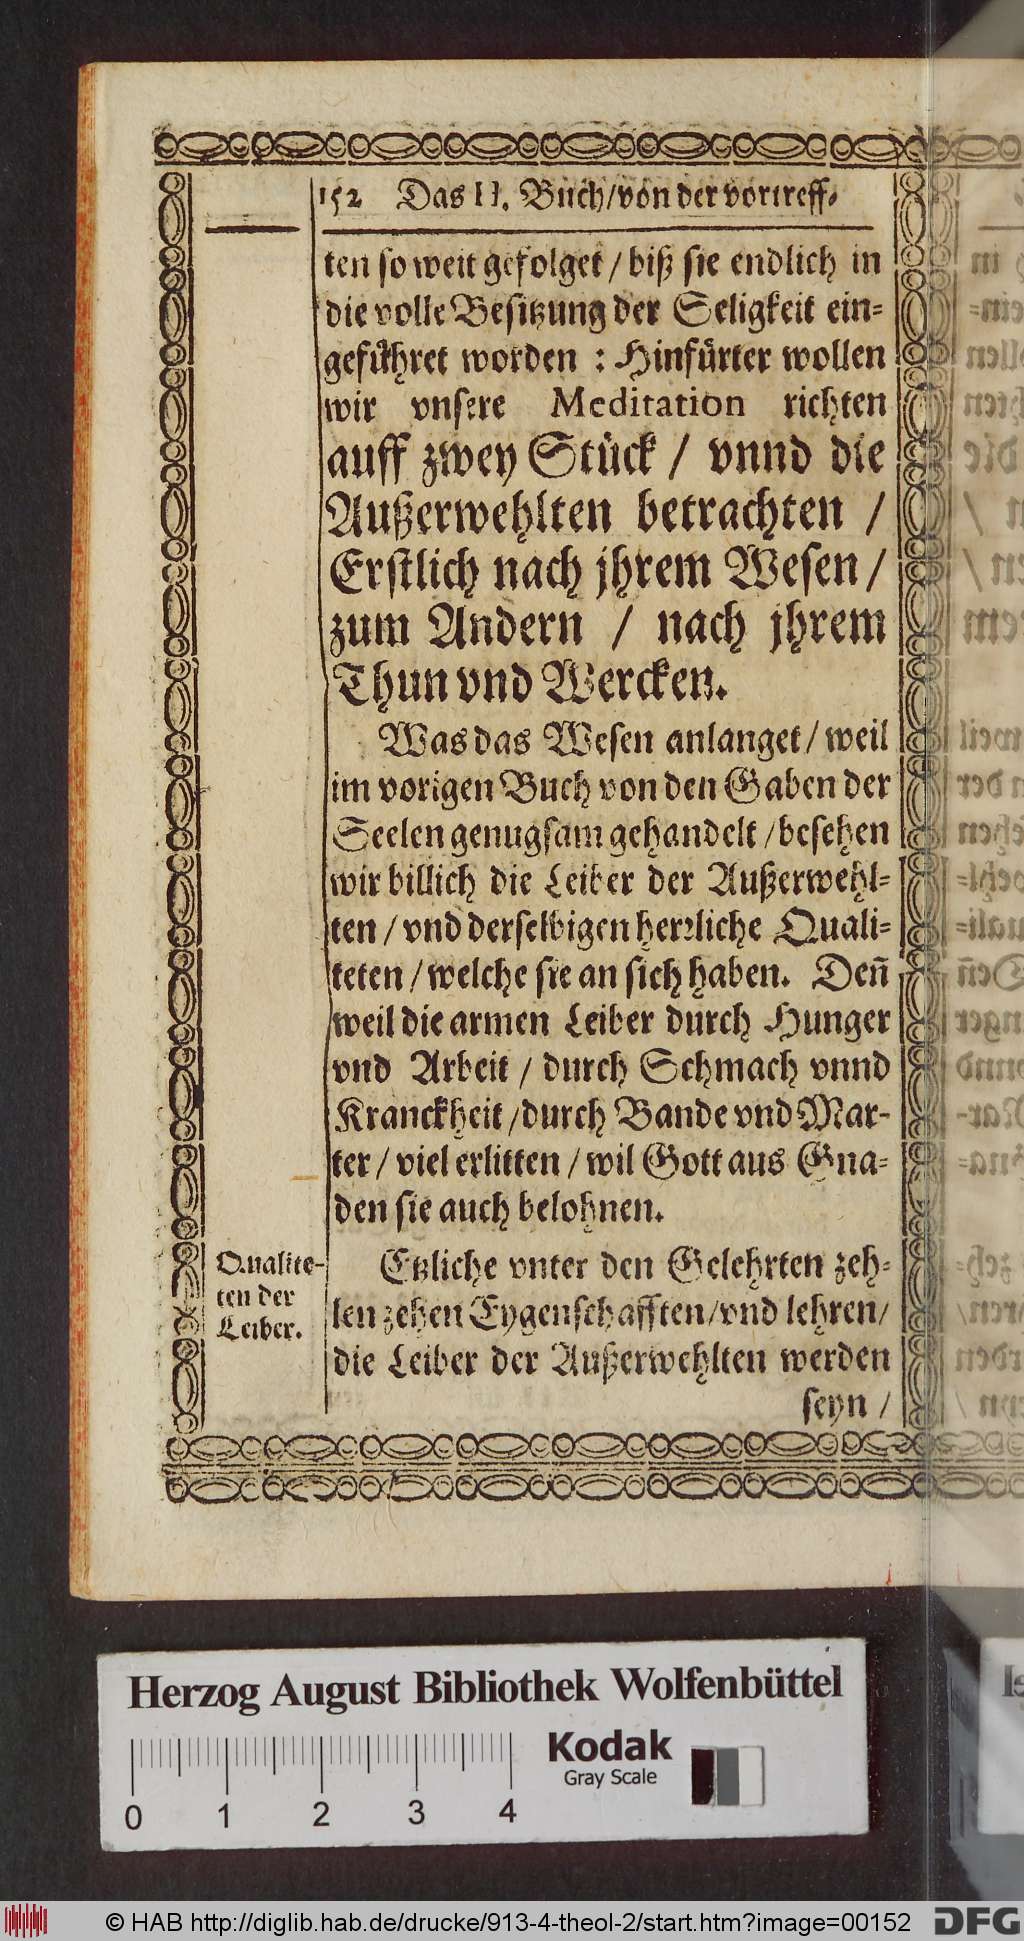 152 Das II. Buch/von der vortreff-
ten so weit gefolget / biß sie endlich in
die volle Besitzung der Seligkeit ein-
geführet worden : Hinfürter wollen
wir vnsere Meditation richten
auff zwey Stück / vnnd die
Außerwehlten betrachten /
Erstlich nach jhrem Wesen /
zum Andern / nach jhrem
Thun vnd Wercken.
Was das Wesen anlanget / weil
im vorigen Buch von den Gaben der
Seelen genugsam gehandelt / besehen
wir billich die Leiber der Außerwehl-
ten / vnd derselbigen herrliche Quali-
teten / welche sie an sich haben. Deñ
weil die armen Leiber durch Hunger
vnd Arbeit / durch Schmach vnnd
Kranckheit / durch Bande vnd Mar-
ter / viel erlitten / wil Gott aus Gna-
den sie auch belohnen.
Qualite-
ten der
Leiber.
Etzliche vnter den Gelehrten zeh-
len zehen Eygenschafften / vnd lehren /
die Leiber der Außerwehlten werden
seyn /
Herzog August Bibliothek Wolfenbüttel
Kodak
Gray Scale
0 1 2 3 4
© HAB http://diglib.hab.de/drucke/913-4-theol-2/start.htm?image=00152
DFG